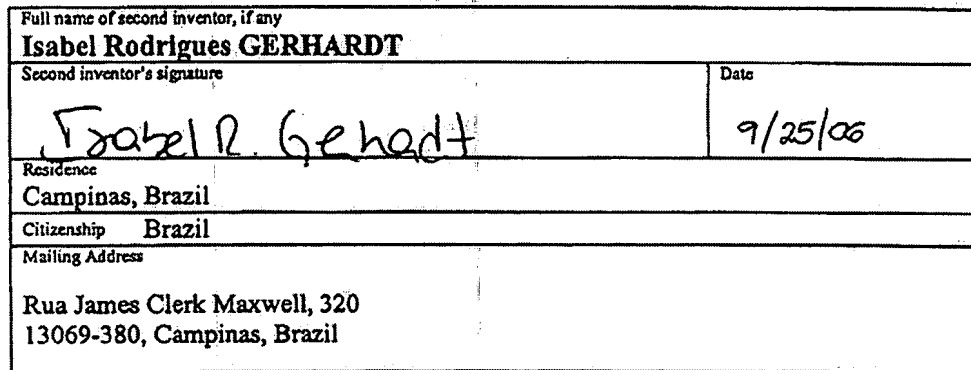 Full name of second inventor, if any
Isabel Rodrigues GERHARDT
Second inventor's signature
Date
Isabel R. Gehadt
9/25/06
Residence
Campinas, Brazil
Citizenship Brazil
Mailing Address
Rua James Clerk Maxwell, 320
13069-380, Campinas, Brazil